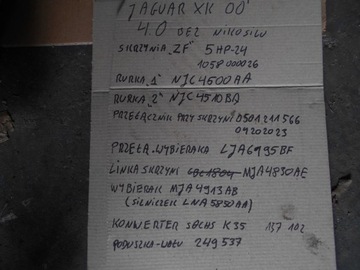 JAGUAR XK 00'
4.0 BEZ NIKOSILU
SKRZYNIA "ZF" 5HP-24
1058 000026
RURKA "1" NJC4500AA
RURKA "2" NJC4510BA
PRZEŁĄCZNIK PRZY SKRZYNI 0501211566
04202023
PRZEŁĄ. WYBIERAKA LJA6995BF
LINKA SKRZYNI MJA4830AE
WYBIERAK MJA4913AB
(SILNICZEK LNA5850AA)
KONWERTER SACHS K35 137 102
PODUSZKA-WAŁU 249537